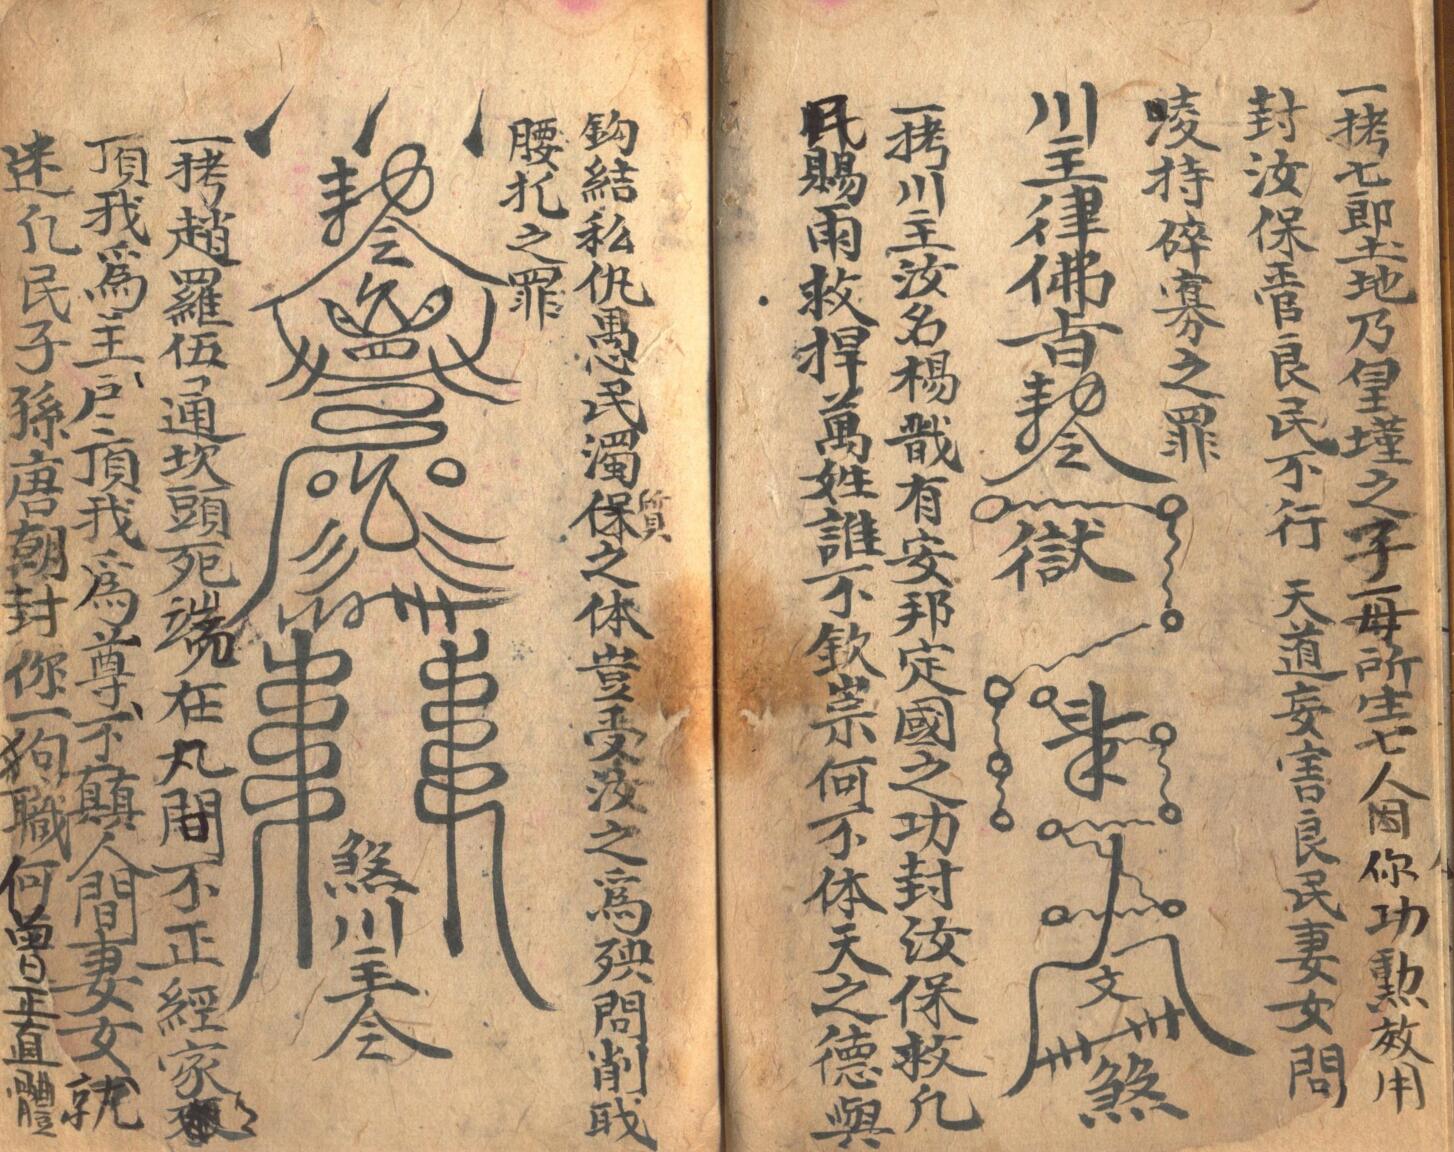 一拷七郎土地乃皇墐之子一母所生七人因你功勲效用
封汝保善良民不行 天道妄害良民妻女問
凌持碎寡之罪
川主律佛言勅令
獄
文
煞
一拷川主汝名楊戩有安邦定國之功封汝保救凡
民賜雨救捍萬姓誰不欽崇何不体天之德與
鈎結私仇愚民濁保之体豈受汝之為殃問削戝
質
腰扎之罪
勅令
煞川主令
一拷趙羅伍通坎頭死端在凡間不正經家
頂我為主戶頂我為尊不顛人間妻女就
迷凡民子孫唐朝封你一狗職何曾正直體